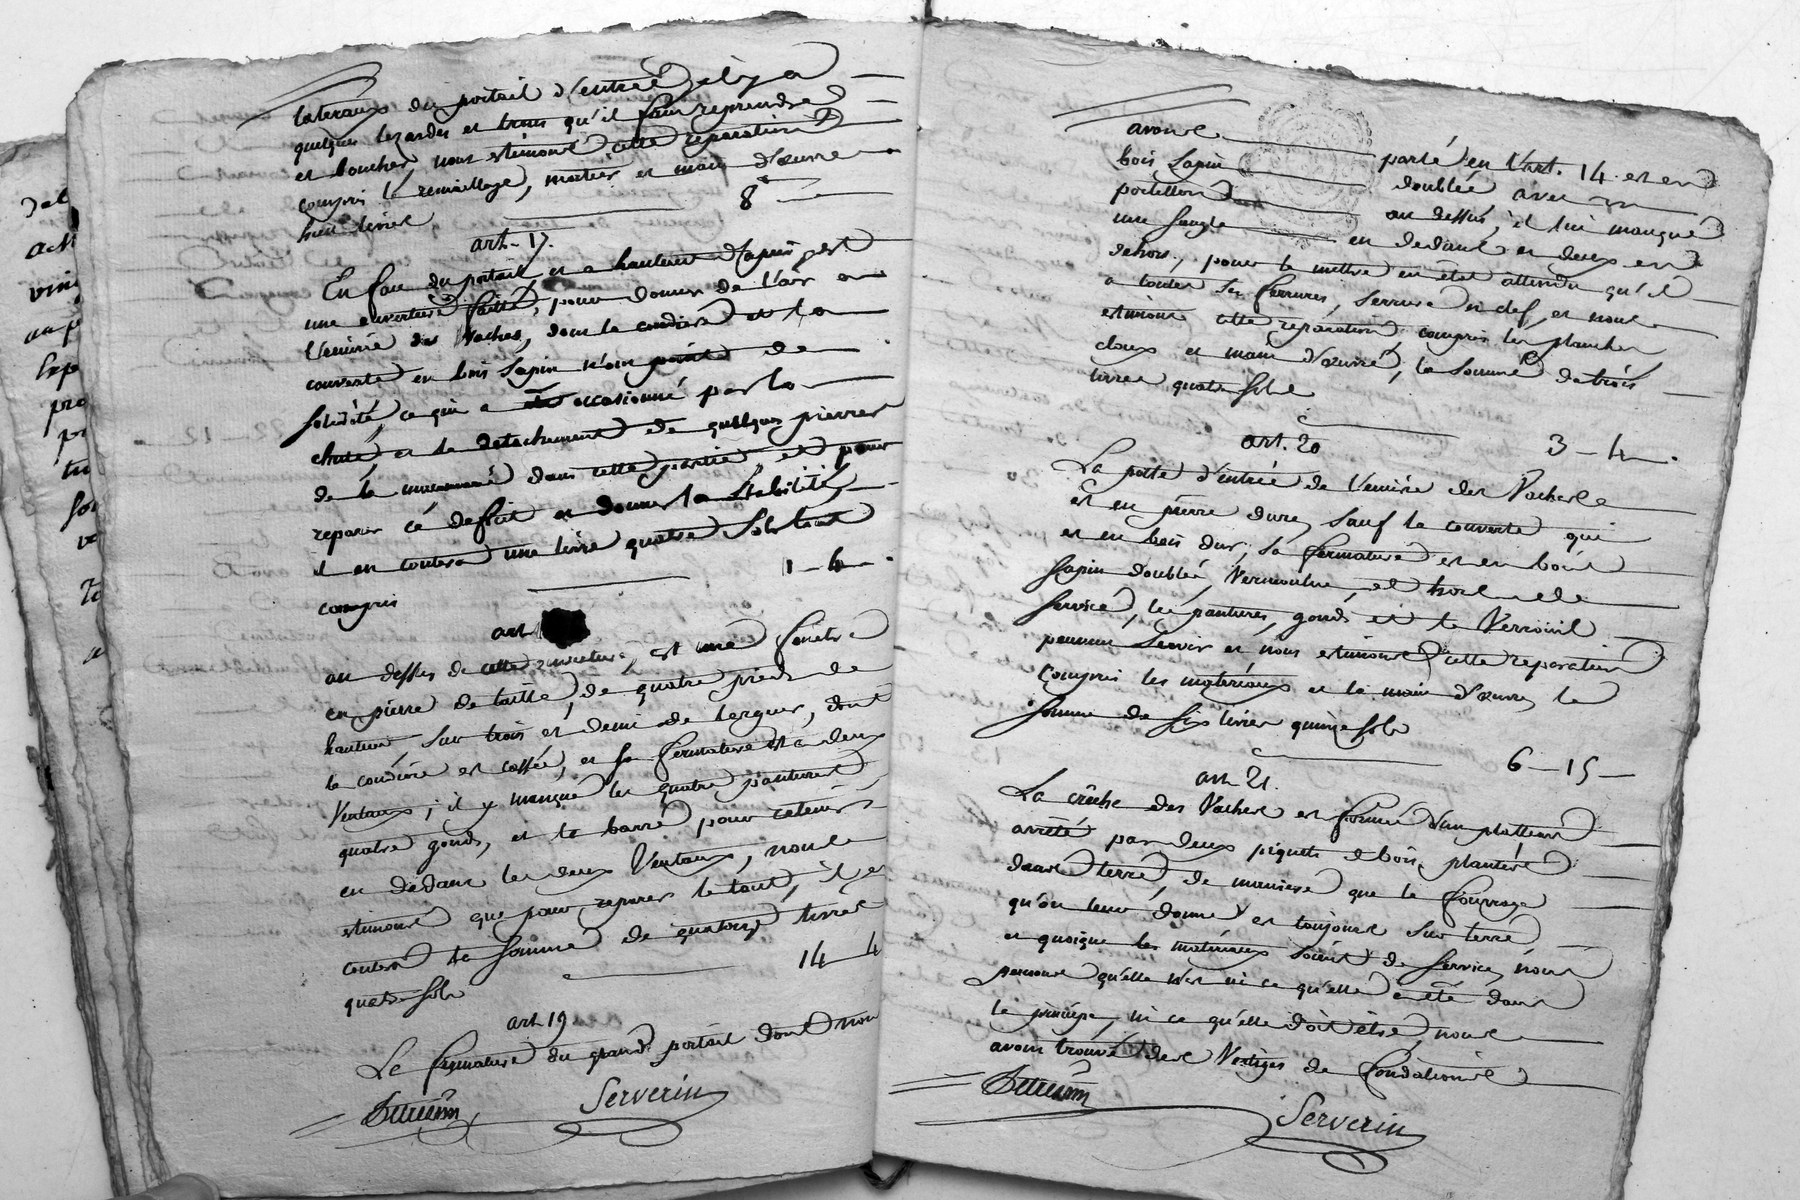 lateraux du portail d'entrée, il y a
quelques lezardes et trous qu'il faut reprendre
et boucher, nous estimons cette reparation
compris le remaillage, mortier et main d'œuvre
huit livres
8
art. 17.
En face du portail, et a hauteur d'apui, est
une ouverture faite, pour donner de l'air a
l'ecurie des Vaches, dont le coudiere et la
couverte en bois sapin n'ont point de
solidité, ce qui a occasionné par la
chute et le detachement de quelques pierres
de la muraille dans cette partie et pour
reparer ce deficit et donner la stabilité
il en coutera une livre quatre sols tout
compris
1 - 4 -
art.
au dessus de cette ouverture, est une fenêtre
en pierre de taille, de quatre pieds de
hauteur, sur trois et demi de largeur, dont
le coudiere est cassée, et sa fermature est a deux
Ventaux; il y manque les quatre pantures,
quatre gonds, et la barre pour retenir
en dedans les deux Ventaux, nous
estimons que pour reparer le tout, il en
coutera la somme de quatorze livres
quatre sols
14 4
art. 19
La fermature du grand portail dont nous
Serverin
avons parlé en l'art. 14 est en
bois sapin doublée avec un
portillon au dessus, il lui manque
une sangle en dedans et deux en
dehors, pour le mettre en état attendu qu'il
a toutes ses ferrures, serrure et clef, et nous
estimons cette reparation, compris les planches
cloux et main d'œuvre, la somme de trois
livres quatre sols
3 - 4 -
art. 20
La porte d'entrée de l'ecurie des Vaches
est en pierre dure, sauf la couverte qui
est en bois dur, sa fermature est en bois
sapin doublée, Vermoulue, et hors de
service, les pantures, gonds et le Verrouil
peuvent servir et nous estimons cette reparation
compris les matériaux et la main d'œuvre, la
somme de six livres quinze sols
6 - 15 -
art. 21.
La crêche des Vaches est formée d'un platteau
arrêté par deux piquets de bois, plantés
dans terre, de maniere que le fourrage
qu'on leur donne est toujours sur terre,
et quoique les matériaux soient de service, nous
pensons qu'elle n'est ni ce qu'elle a été dans
le principe, ni ce qu'elle doit être, nous
avons trouvé des Vestiges de fondations
Serverin